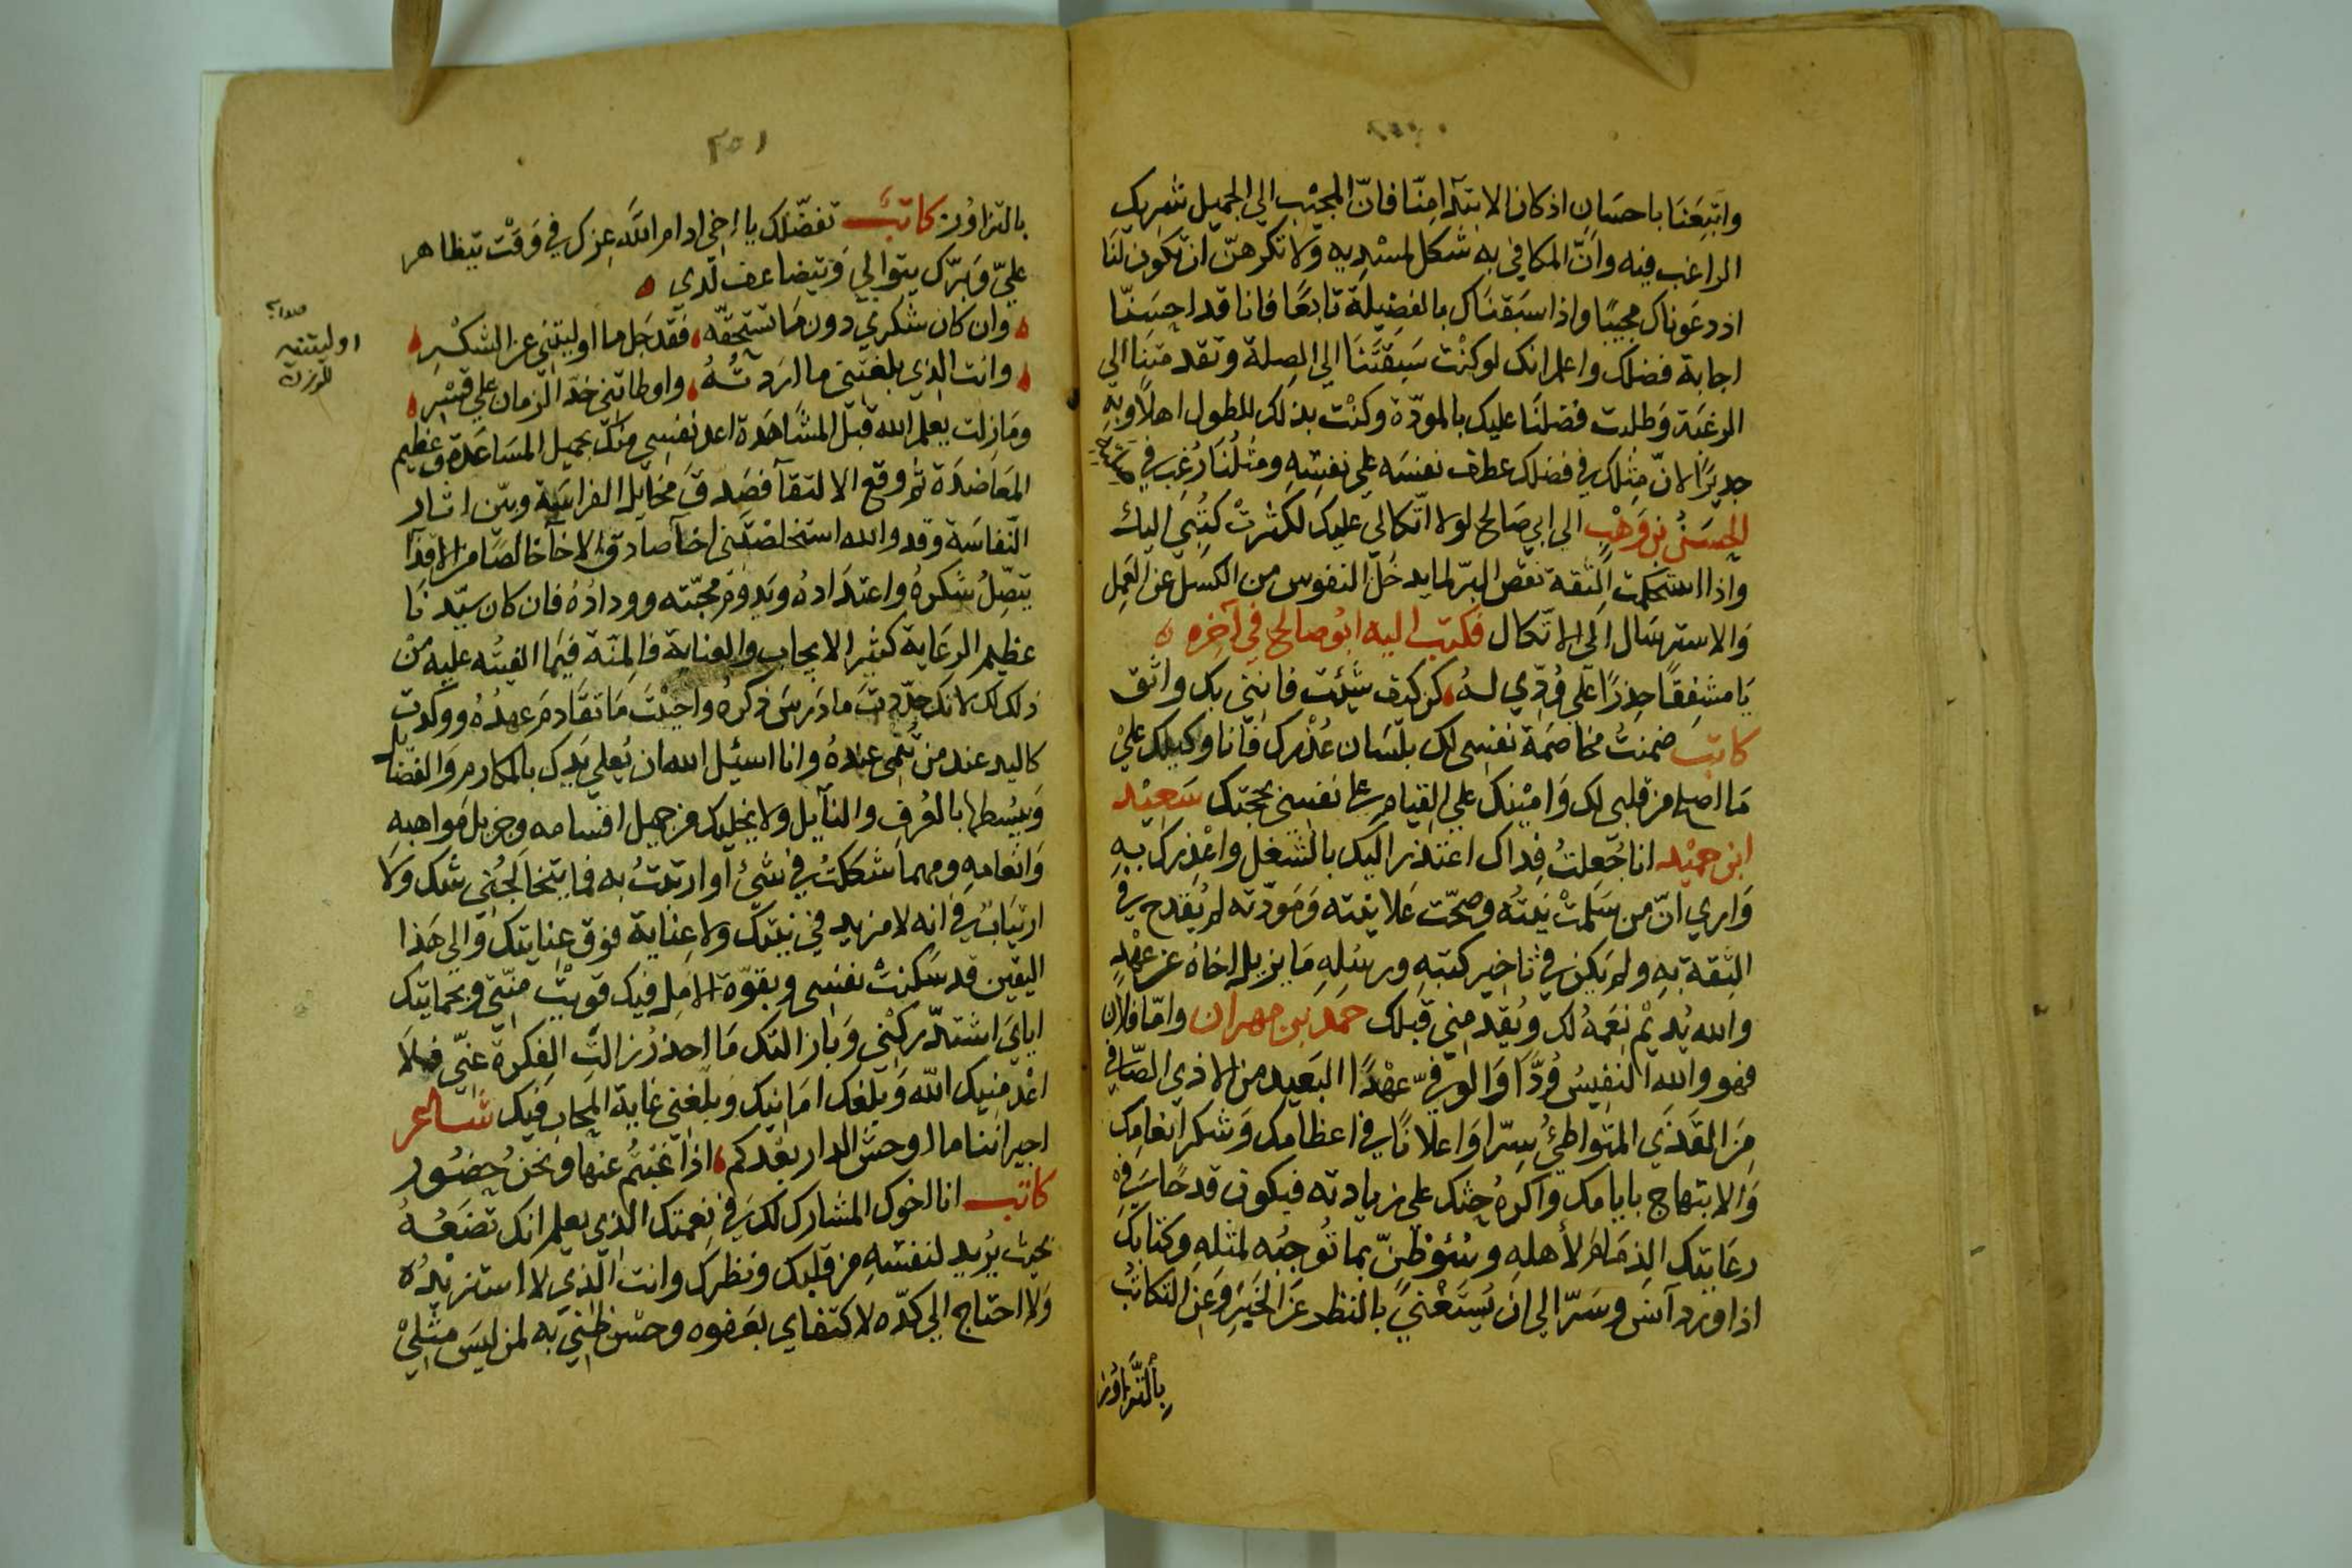 واتبعنا باحسان اذ كان الابتدآ منّا فانّ المجيب الي الجميل شريك
الراغب فيه وانّ المكافي به شكل لمسديه ولا تكرهنّ ان تكون لنا
اذ دعوناك مجيبًا واذا سبقناك بالفضيلة تابعًا فانا قد احسنّا
اجابة فضلك واعلم انك لو كنت سبقتنا الي الصلة وتقدمتنا الي
الرغبة وطلت فضلنا عليك بالمودّة وكنت بذلك للطول اهلًا وبه
جديرًا لانّ مثلك في فضلك عطف نفسه علي نفسه ومثلنا رُغب في
الحسن بن وهب الي ابي صالح لولا اتّكالي عليك لكثرت كتبي اليك
واذا استحكمت الثقة نقص البرّ لما يدخل النفوس من الكسل عن العمل
والاسترسال الي الاتّكال فكتب اليه ابو صالح في آخره ه
يا مشفقًا حذرًا علي ودّي له كن كيف شئت فانني بك واثق
كاتب ضمنتُ مخاصمة نفسي لك بلسان عذرك فانا وكيلك علي
ما اصلح من قلبي لك وامينك علي القيام علي نفسي بحجتك سعيد
ابن حميد انا جُعلتُ فداك اعتذر اليك بالشغل واعذرك به
واري انّ من سلمت نيته وصحّت علانيته ومودّته لم يقدح في
الثقة به ولم يكن في تاخير كتبه ورسله ما يزيل اخاه عن عهده
والله يُديم نعمه لك ويقدمني قبلك حمد بن مهران وامّا فلان
فهو والله النفيس ودًّا والوفيّ عهدًا البعيد من الاذي الصافي
من القذي المتواطئ سرّا واعلانًا في اعظامك وشكر انعامك
والابتهاج بايامك واكره حثك علي زيادته فيكون قدحًا في
رعايتك الذمام لأهله وسُؤ ظنّ بما توجبه لمثله وكتابك
اذا ورد آنس وسرّ الي ان يستغني بالنظر عن الخبر وعن التكاتب
بالتزاور
٢٥١
بالتزاور كاتب تفضّلك يا اخي ادام الله عزك في وقت يتظاهر
عليّ وبرّك يتوالي ويتضاعف لدي ه
وان كان شكري دون ما تستحقّه فقد جل ما اوليتني عن الشكر
وانت الذي بلغتني ما اردته واوطاتني خدّ الزمان علي قسر
اوليتنيه
للوزن
وما زلت يعلم الله قبل المشاهدة اعد نفسي منك بجميل المساعدة وعظيم
المعاضدة ثم وقع الالتقآ فصدق مخايل الفراسة وبيّن اثار
النّفاسة وقد والله استخلصتني اخآ صادق الاخآ خالصًا من الاقذآ
يتصل شكره واعتداده ويدوم محبّته ووداده فان كان سيّدنا
عظيم الرعاية كثير الايجاب والعناية فالمنّة فيما الفيته عليه من
ذلك لك لانك جدّدت ما درس ذكره واحييت ما تقادم عهده ووكدت
كاليد عند من تنمي عنده وانا اسئل الله ان يُعلي يدك بالمكارم والفضايل
ويبسطها بالعرف والنآيل ولا يخليك من جميل اقسامه وجزيل مواهبه
وانعامه ومهما شككت في شئ او ارتبت به فما يتخالجني شك ولا
ارتياب في انه لا مزيد في نيتك ولا عناية فوق عنايتك والي هذا
اليقين قد سكنت نفسي وبقوّة الامل فيك قويت منّتي وبحمايتك
اياي اشتدّ ركني وبازالتك ما احذر زالت الفكرة عنّي فلا
اعدمنيك الله وبلغك امانيك وبلّغني غاية المحاب فيك شاعر
اجيراننا ما اوحش الدار بعدكم اذا غبتم عنها ونحن حضور
كاتب انا اخوك المشارك لك في نعمتك الذي يعلم انك تضعه
بحيث يريد لنفسه من قلبك ونظرك وانت الذي لا استزيده
ولا احتاج الي كدّه لاكتفاي بعفوه وحسن ظني به لمن ليس مثلي